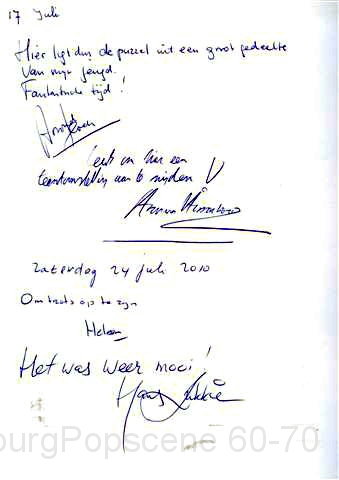 17 Juli
Hier ligt dus de puzzel uit een groot gedeelte
van mijn jeugd.
Fantastische tijd!
Leuk om hier een
tentoonstelling aan te wijden
zaterdag 24 juli 2010
Om trots op te zijn
Heleen
Het was weer mooi!
Hans
burgPopscene 60-70